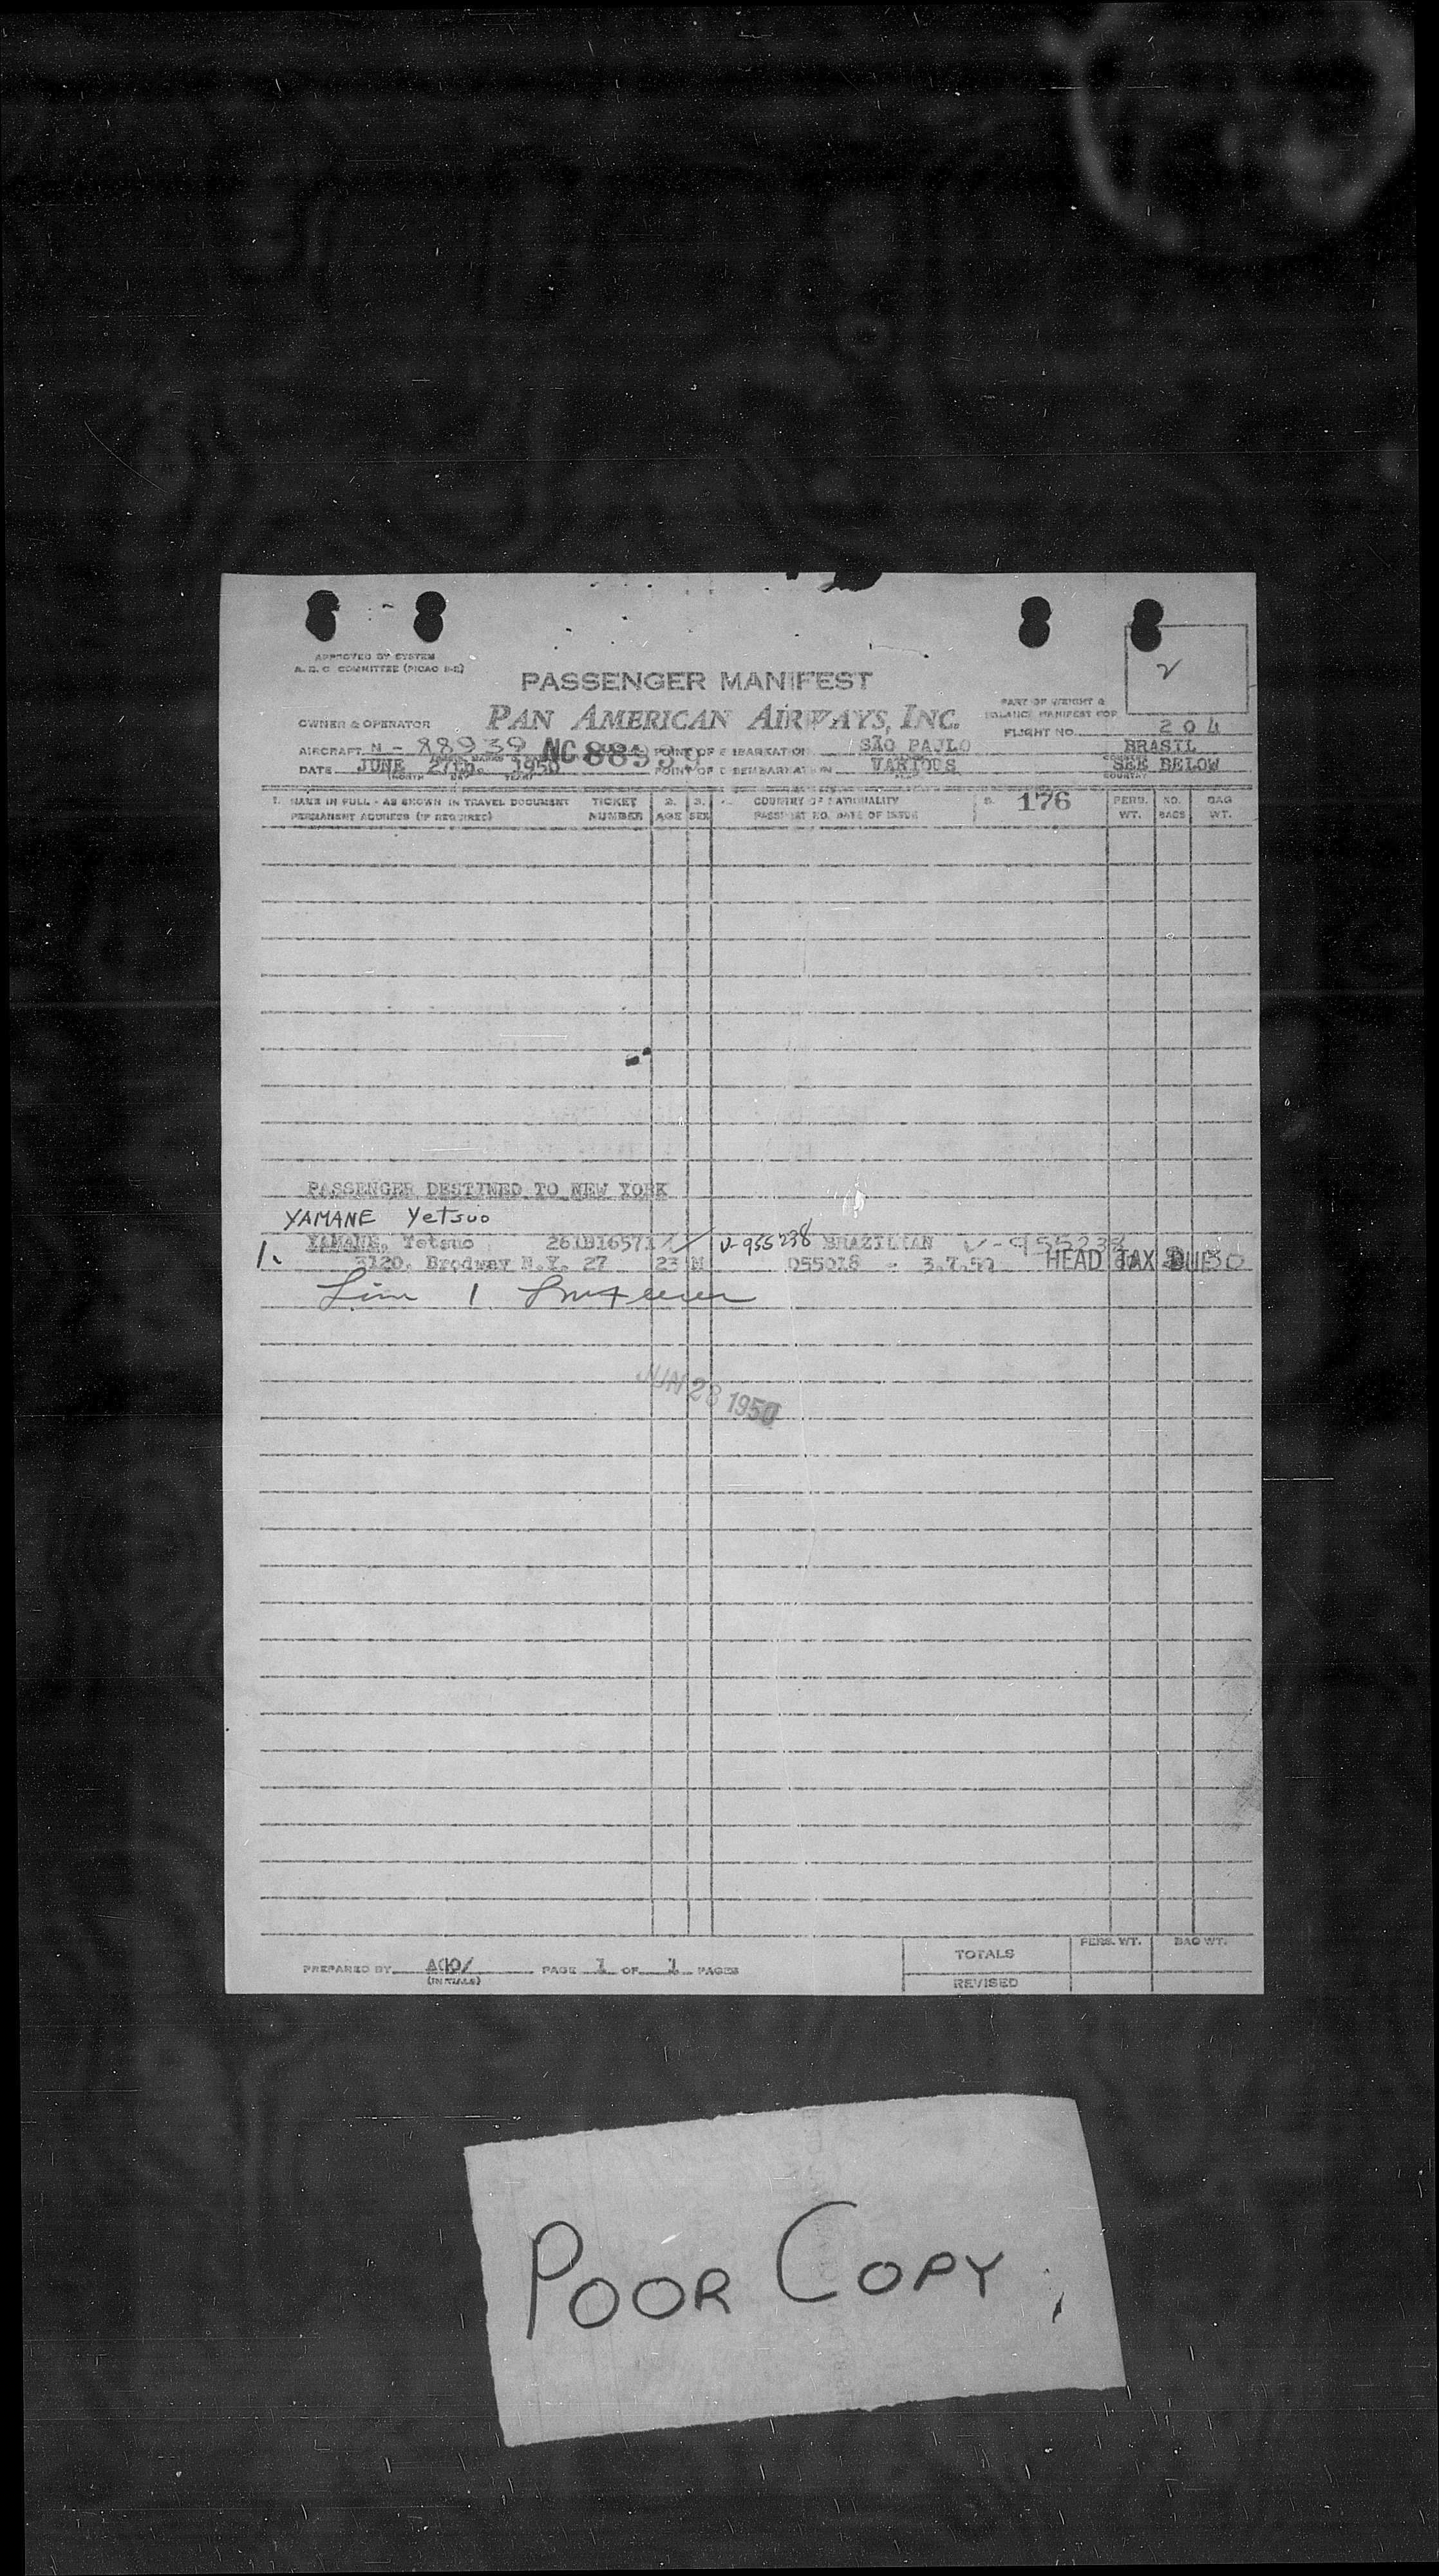 APPROVED BY SYSTEM
A. D. C COMMITTEE (PICAO B-2)
2
PASSENGER MANIFEST
PAN AMERICAN AIRWAYS, INC.
PART OF WEIGHT &
BALANCE MANIFEST FOR
OWNER & OPERATOR
FLIGHT NO. 204
AIRCRAFT N - 88939 NC 88939 POINT OF EMBARKATION SÃO PAULO BRASIL
DATE JUNE 27th. 1950 POINT OF DISEMBARKATION VARIOUS SEE BELOW
1. NAME IN FULL - AS SHOWN IN TRAVEL DOCUMENT TICKET 2. 3. COUNTRY OF NATIONALITY 5. 176 PERS. NO. BAG
PERMANENT ADDRESS (IF REQUIRED) NUMBER AGE SEX PASSPORT NO. DATE OF ISSUE WT. BAGS WT.
PASSENGER DESTINED TO NEW YORK
YAMANE Yetsuo
YAMANE, Yetsuo V-955238 BRAZILIAN V-955238
1. 3120, Brodway N.Y. 27 23 M 055018 - HEAD TAX DUE
JUN 28 1950
PREPARED BY (INITIALS) PAGE 1 OF 1 PAGES
TOTALS PERS. WT. BAG WT.
REVISED
POOR COPY